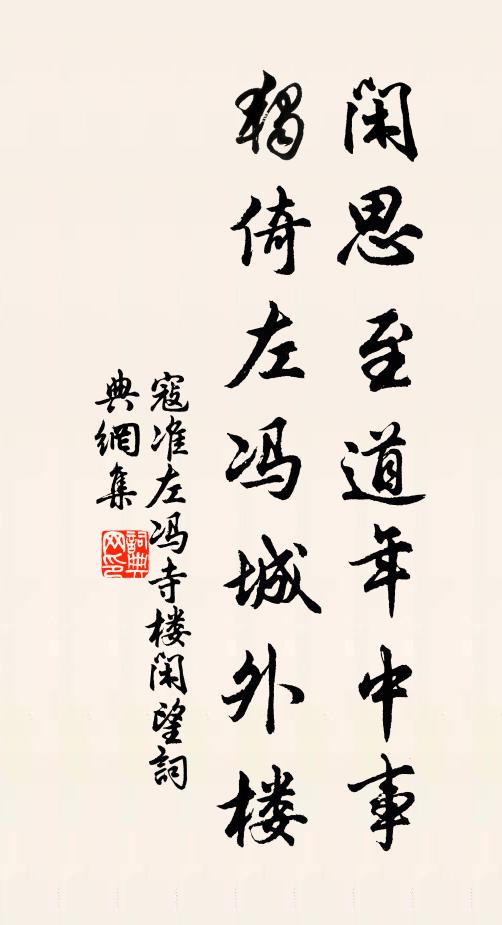 闲思至道年中事
独倚左冯城外楼
寇准左冯寺楼闲望词
典網集
詞典
网印